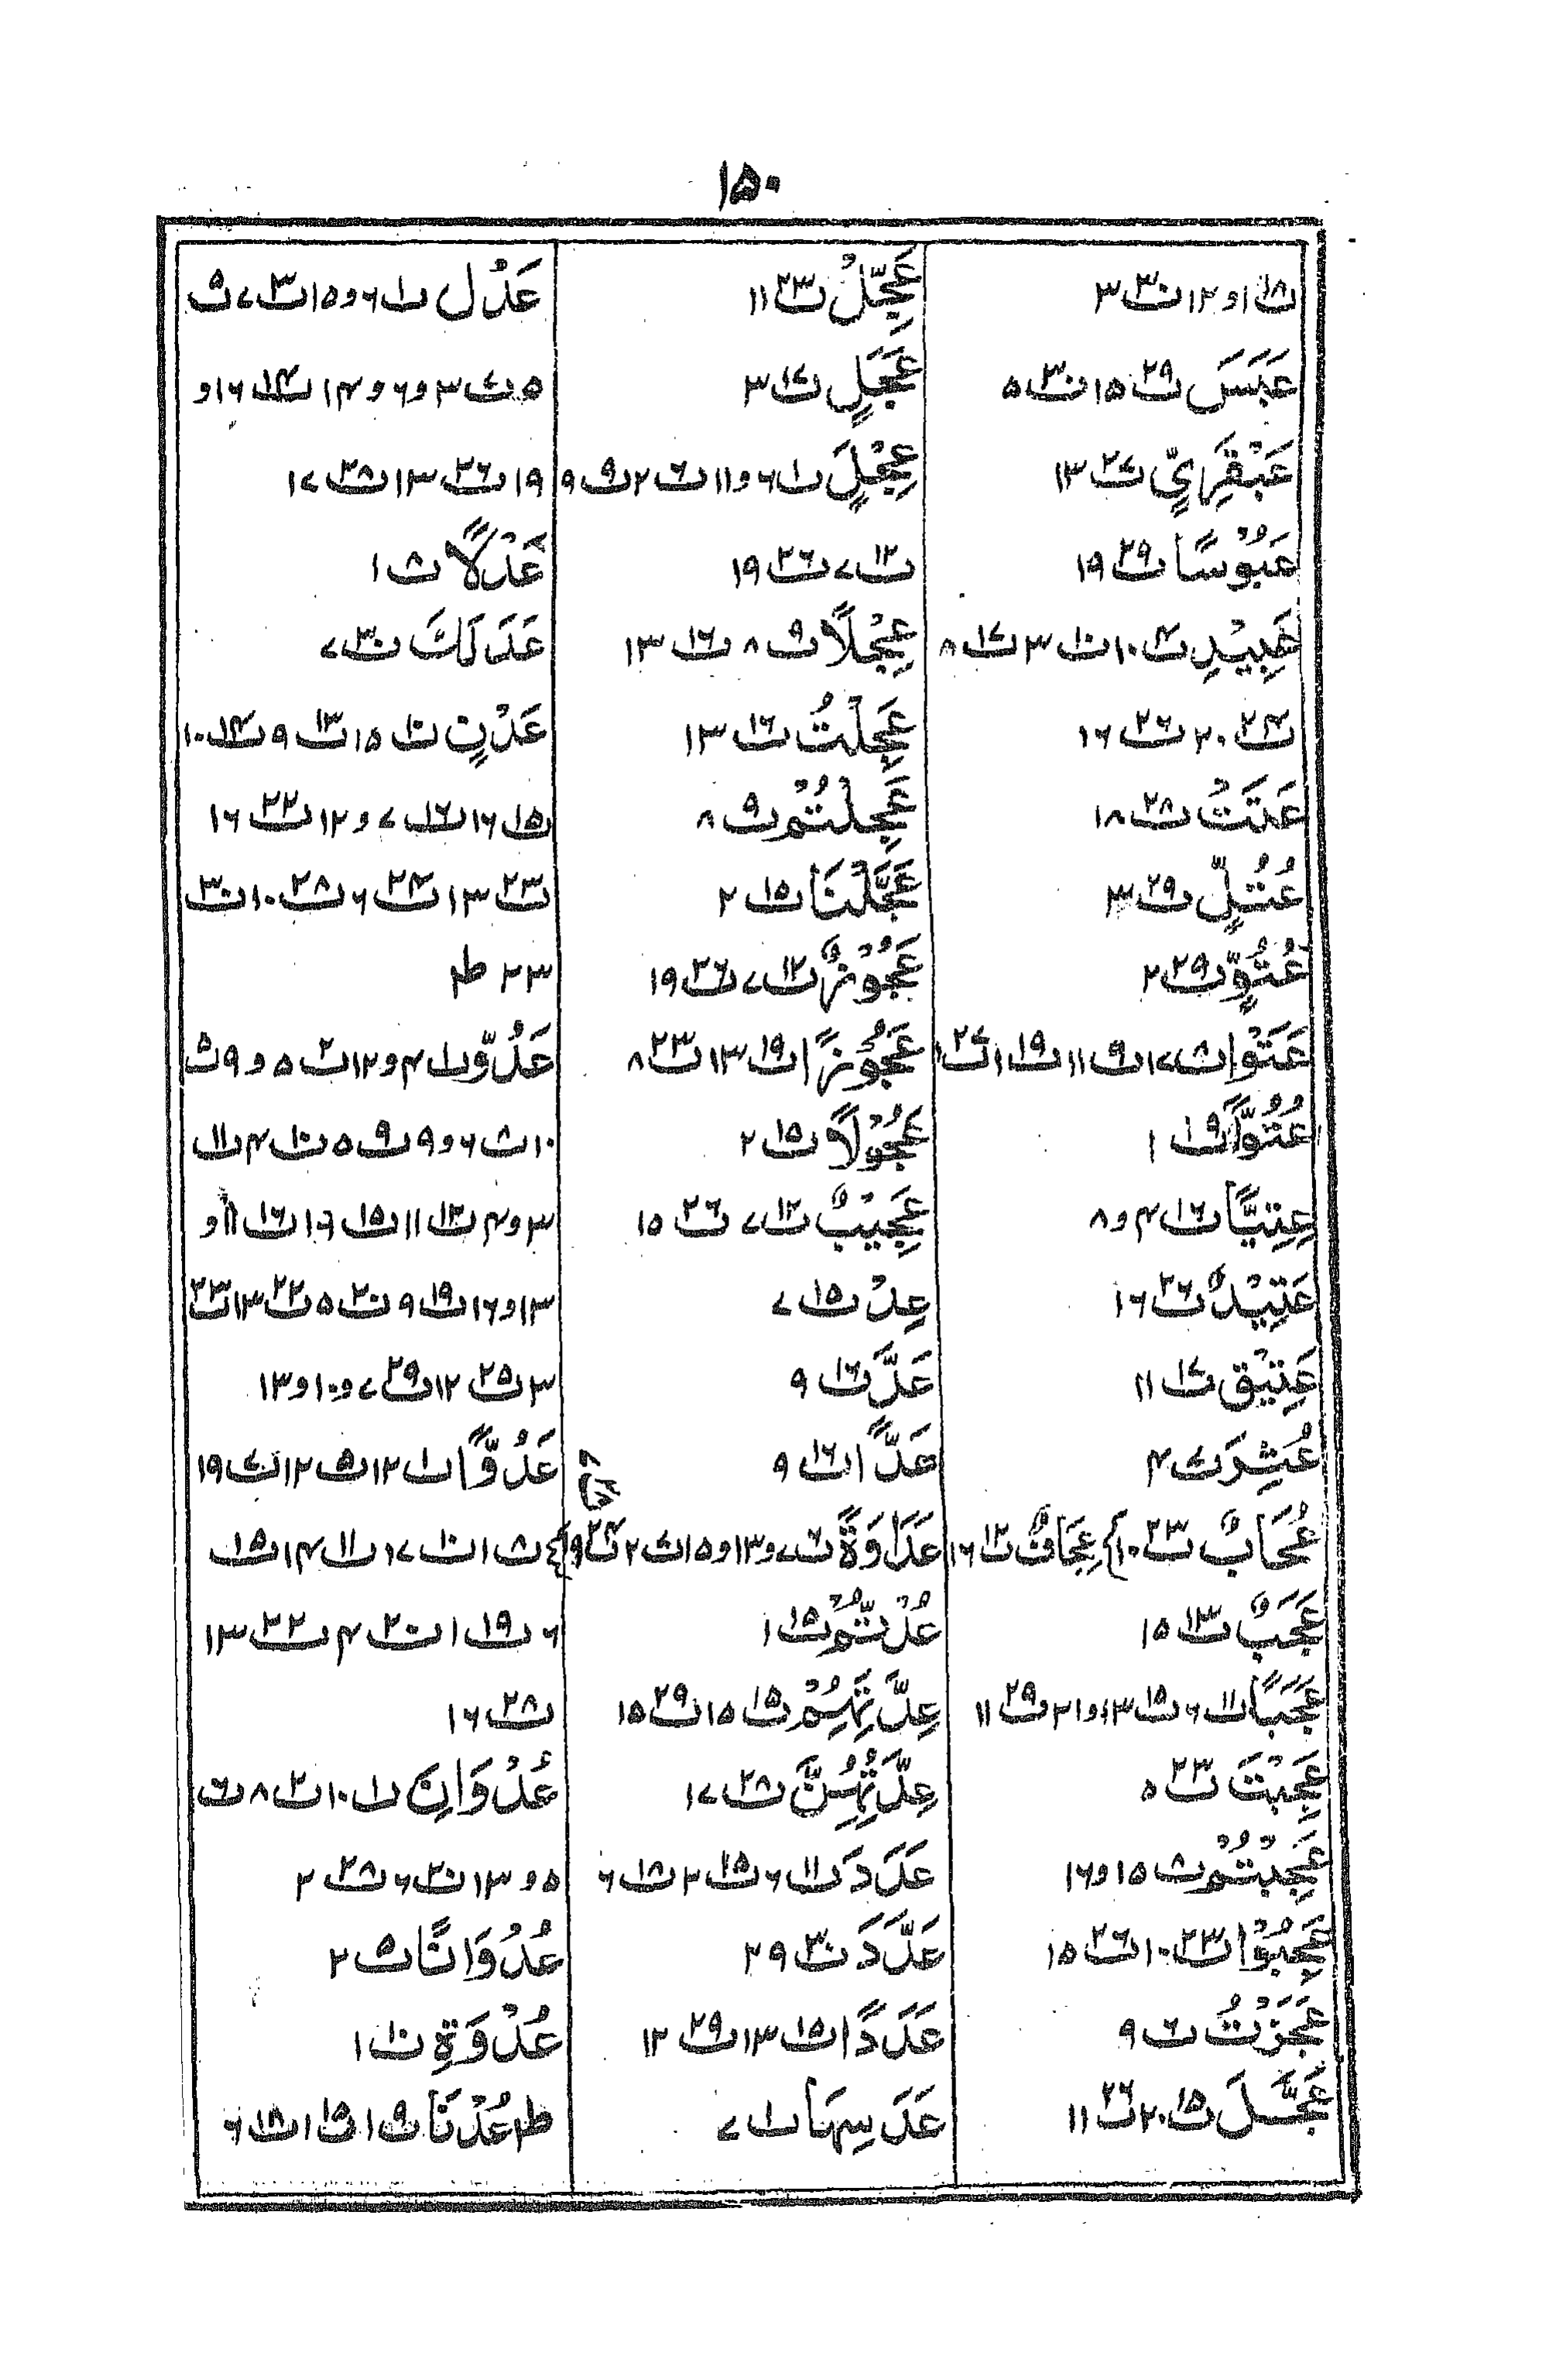 ۱۵۰
ت۱۸ ۱و۱۲ ت۳۰ ۳
عَبَسَ ت۲۹ ۱۵ ت۳۰ ۵
عَبْقَرِيٍّ ت۲۷ ۱۳
عَبُوْسًا ت۲۹ ۱۹
عَبِيْدِ ت۴ ۱۰ ت۱۰ ۳ ت۱۷ ۸
ت۲۴ ۲۰ ت۲۶ ۱۶
عَتَتْ ت۲۸ ۱۸
عُتُلٍّ ت۲۹ ۳
عُتُوٍّ ت۲۹ ۲
عَتَوْا ت۸ ۱۷ ت۹ ۱۱ ت۱۹ ۱ ت۲۷ ۱
عُتُوًّا ت۱۹ ۱
عِتِيًّا ت۱۶ ۴و۸
عَتِيْدٌ ت۲۶ ۱۶
عَتِيْقِ ت۱۷ ۱۱
عُثِرَ ت۷ ۴
عُجَابٌ ت۲۳ ۱۰ عِجَافٌ ت۱۲ ۱۶
عَجَبٌ ت۱۳ ۱۵
عَجَبًا ت۱۱ ۶ ت۱۵ ۱۳و۲۱ ت۲۹ ۱۱
عَجِبْتَ ت۲۳ ۵
عَجِبْتُمْ ت۸ ۱۵و۱۶
عَجِبُوْا ت۲۳ ۱۰ ت۲۶ ۱۵
عَجَزْتُ ت۶ ۹
عَجَّلَ ت۱۵ ۲۰ ت۲۶ ۱۱
عَجِّلْ ت۲۳ ۱۱
عَجَلٍ ت۱۷ ۳
عِجْلٍ ت۱ ۶و۱۱ ت۶ ۲ ت۹ ۹
ت۱۲ ۷ ت۲۶ ۱۹
عِجْلًا ت۹ ۸ ت۱۶ ۱۳
عَجِلْتُ ت۱۶ ۱۳
عَجِلْتُمْ ت۹ ۸
عَجَّلْنَا ت۱۵ ۲
عَجُوْزٌ ت۱۲ ۷ ت۲۶ ۱۹
عَجُوْزًا ت۱۹ ۱۳ ت۲۳ ۸
عَجُوْلًا ت۱۵ ۲
عَجِيْبٌ ت۱۲ ۷ ت۲۶ ۱۵
عِدْ ت۱۵ ۷
عَدَّ ت۱۶ ۹
عَدًّا ت۱۶ ۹
عَدَاوَةً ت۶ ۷و۱۳و۱۵ ت۷ ۲ ت۲۴ ۱۹
عُدْتُّمْ ت۱۵ ۱
عِدَّتِهِمْ ت۱۵ ۱۵ ت۲۹ ۱۵
عِدَّتِهِنَّ ت۲۸ ۱۷
عَدَدَ ت۱۱ ۶ ت۱۵ ۲ ت۱۸ ۶
عَدَّدَ ت۳۰ ۲۹
عَدَدًا ت۱۵ ۱۳ ت۲۹ ۱۲
عَدَسِهَا ت۱ ۷
عَدْلٌ ت۱ ۶و۱۵ ت۳ ۷ ت۵
۵ ت۷ ۳و۶و۱۴ ت۱۴ ۱۶و
۱۹ ت۲۶ ۱۳ ت۲۸ ۱۷
عَدْلًا ت۸ ۱
عَدَلَكَ ت۳۰ ۷
عَدْنٍ ت۱۰ ۱۵ ت۱۳ ۹ ت۱۴ ۱۰
ت۱۵ ۱۶ ت۱۶ ۷و۱۲ ت۲۲ ۱۶
ت۲۳ ۱۳ ت۲۴ ۶ ت۲۸ ۱۰ ت۳۰
۲۳ ط۲
عَدُوٌّ ت۱ ۴و۱۲ ت۲ ۵و۹ ت۵
۱۰ ت۸ ۶و۹ ت۹ ۵ ت۱۰ ۴ ت۱۱
۳و۴ ت۱۳ ۱۱ ت۱۵ ت۱۶ ۱۱و
۱۳و۱۶ ت۱۹ ۹ ت۲۰ ۵ ت۲۲ ۱۳ ت۲۳
۳ ت۲۵ ۱۲ ت۲۹ ۷و۱۰و۱۳
عَدُوًّا ت۱ ۱۲ ت۵ ۱۲ ت۷ ۱۹
ت۸ ۱ ت۱۰ ۱۷ ت۱۱ ۱۴ ت۱۵
۶ ت۱۹ ۱ ت۲۰ ۴ ت۲۲ ۱۳
ت۲۸ ۱۶
عُدْوَانِ ت۱ ۱۰ ت۲ ۸ ت۶
۵و۱۳ ت۲۰ ۶ ت۲۸ ۲
عُدْوَانًا ت۵ ۲
عُدْوَةِ ت۱۰ ۱
ط۲ عُدْنَا ت۹ ۱ ت۱۵ ۱ ت۱۸ ۶